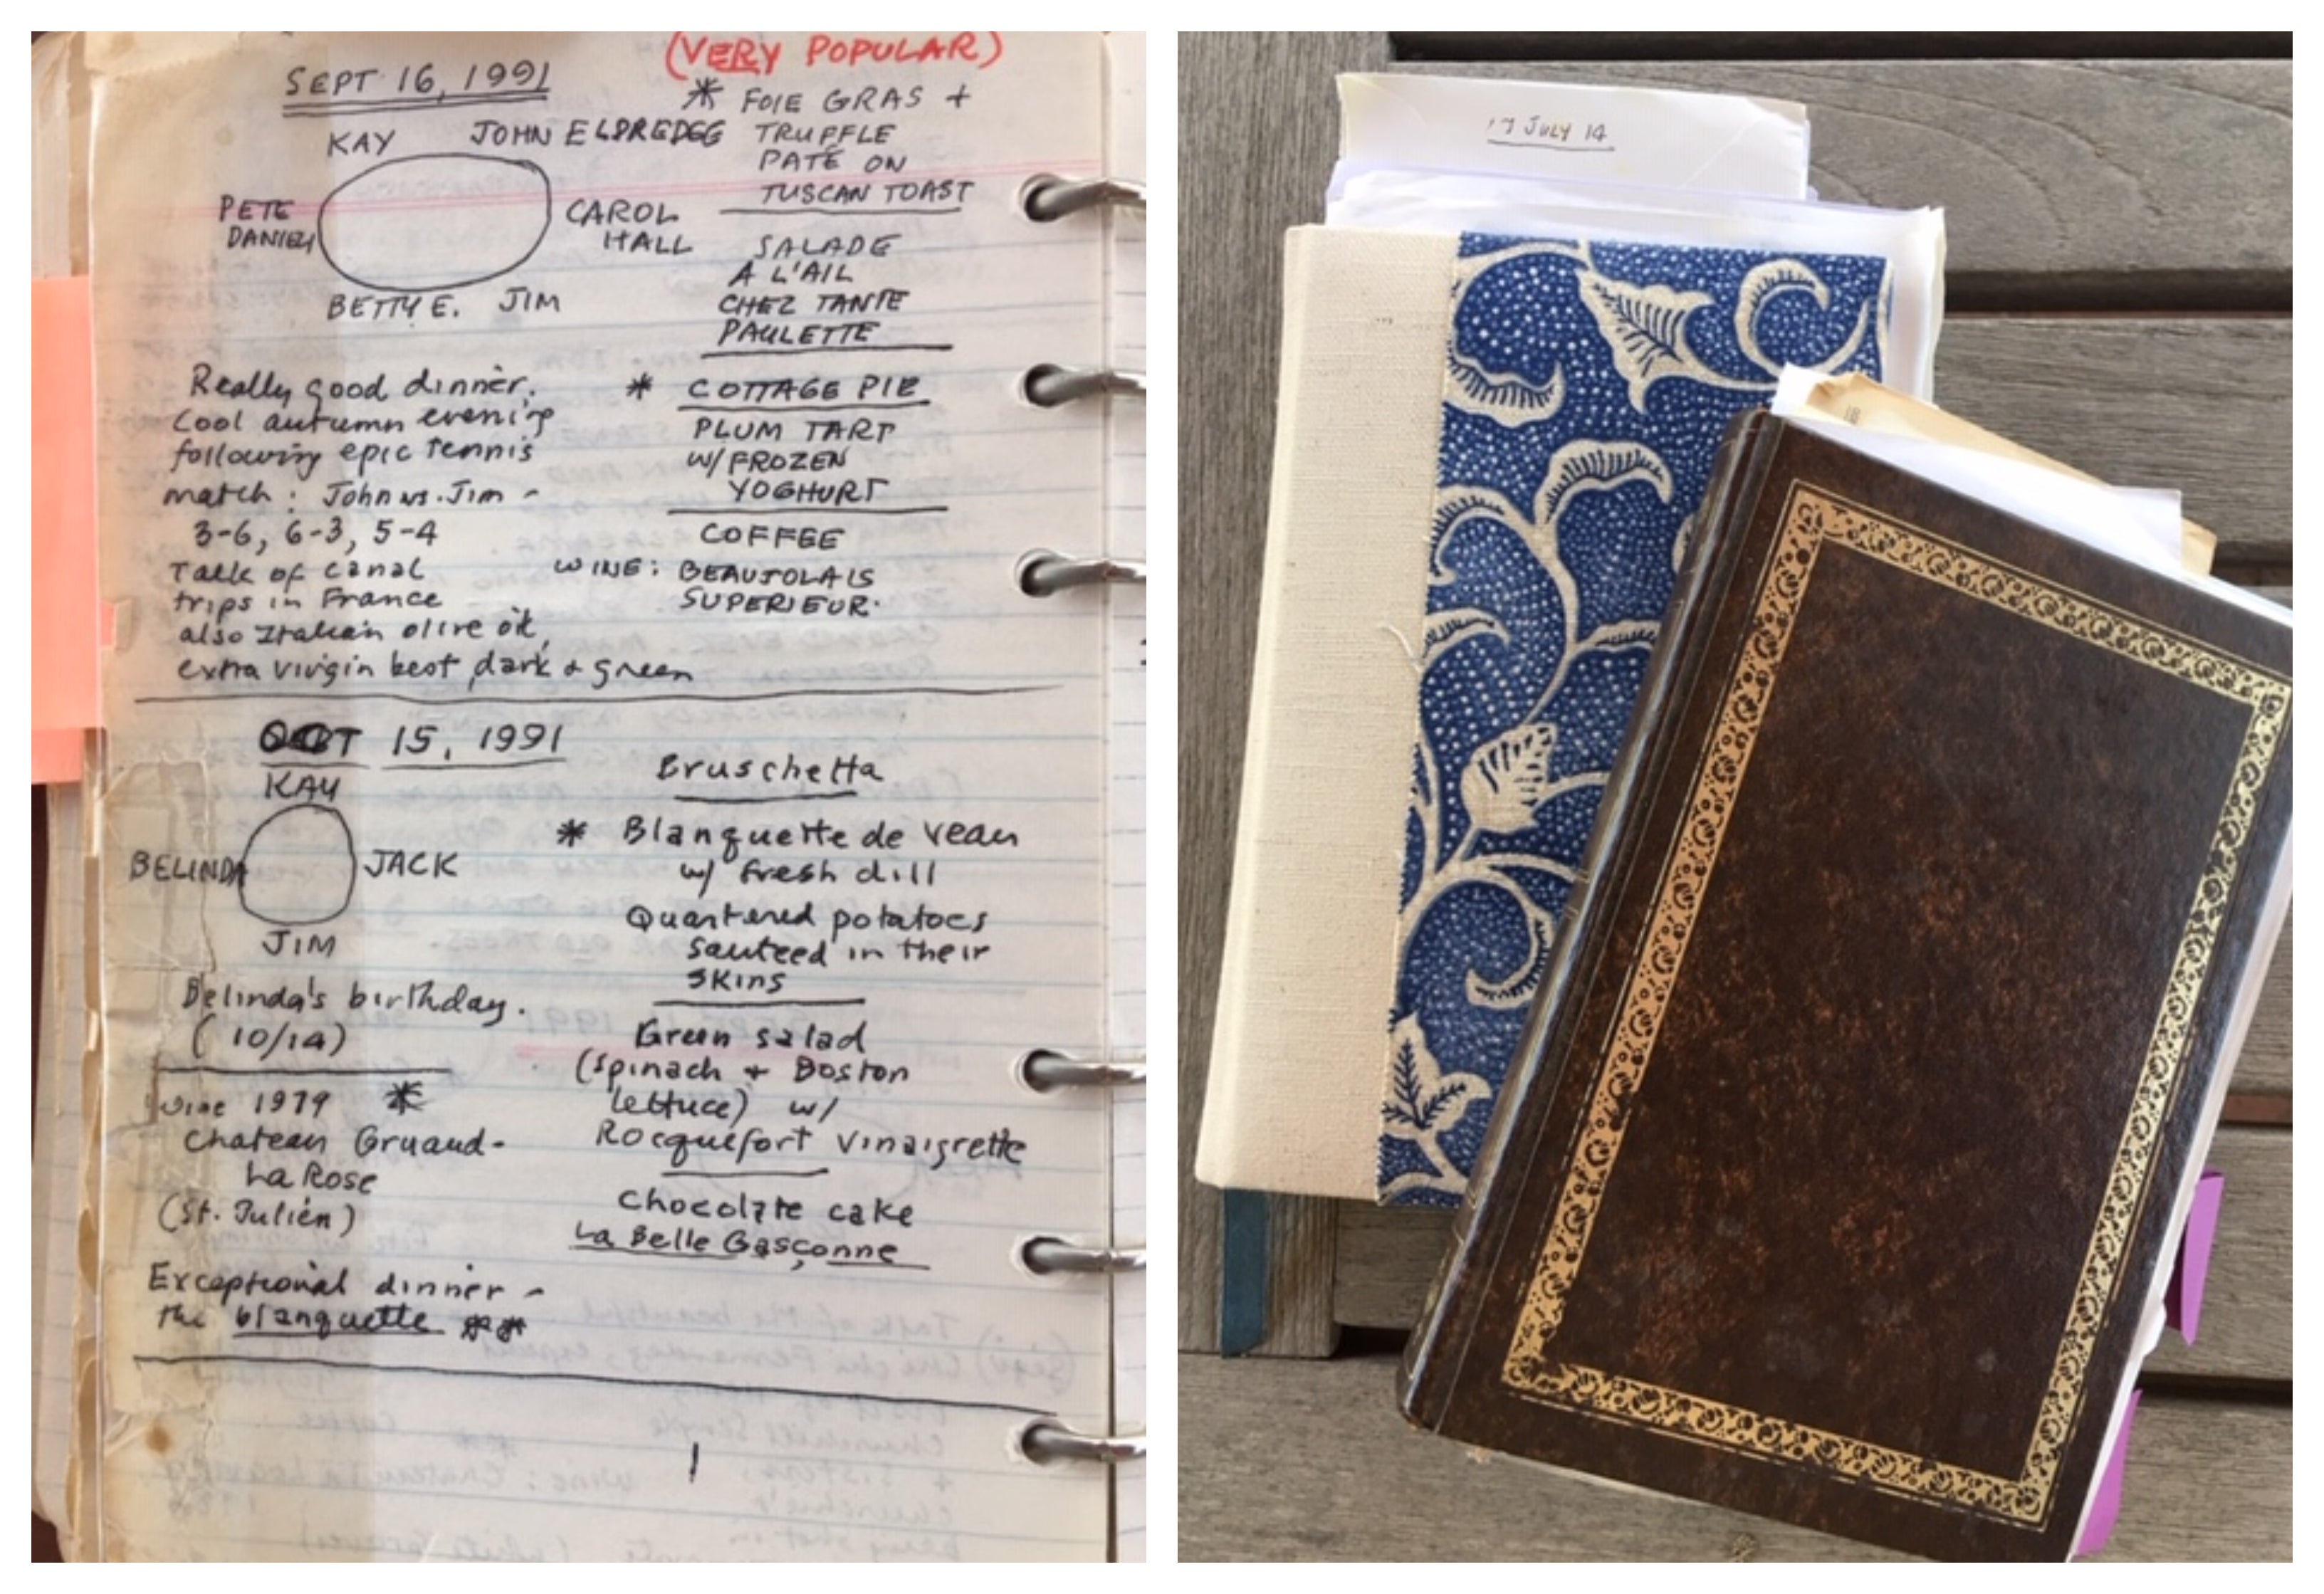 (VERY POPULAR)
SEPT 16, 1991
KAY JOHN ELDREDGE
PETE
DANIELS
CAROL
HALL
BETTY E. JIM
Really good dinner.
Cool autumn evening
following epic tennis
match: John vs. Jim -
3-6, 6-3, 5-4
Talk of canal
trips in France
also Italian olive oil,
extra virgin best dark & green
* FOIE GRAS +
TRUFFLE
PATÉ ON
TUSCAN TOAST
SALADE
A L'AIL
CHEZ TANTE
PAULETTE
* COTTAGE PIE
PLUM TART
W/ FROZEN
YOGHURT
COFFEE
WINE: BEAUJOLAIS
SUPERIEUR.
OCT 15, 1991
KAY
BELINDA JACK
JIM
Belinda's birthday.
(10/14)
Wine 1979 *
Chateau Gruaud-
La Rose
(St. Julien)
Exceptional dinner -
the blanquette **
Bruschetta
* Blanquette de veau
w/ fresh dill
Quartered potatoes
sauteed in their
skins
Green salad
(spinach + Boston
lettuce) w/
Rocquefort vinaigrette
Chocolate cake
La Belle Gasconne
JULY 14
18